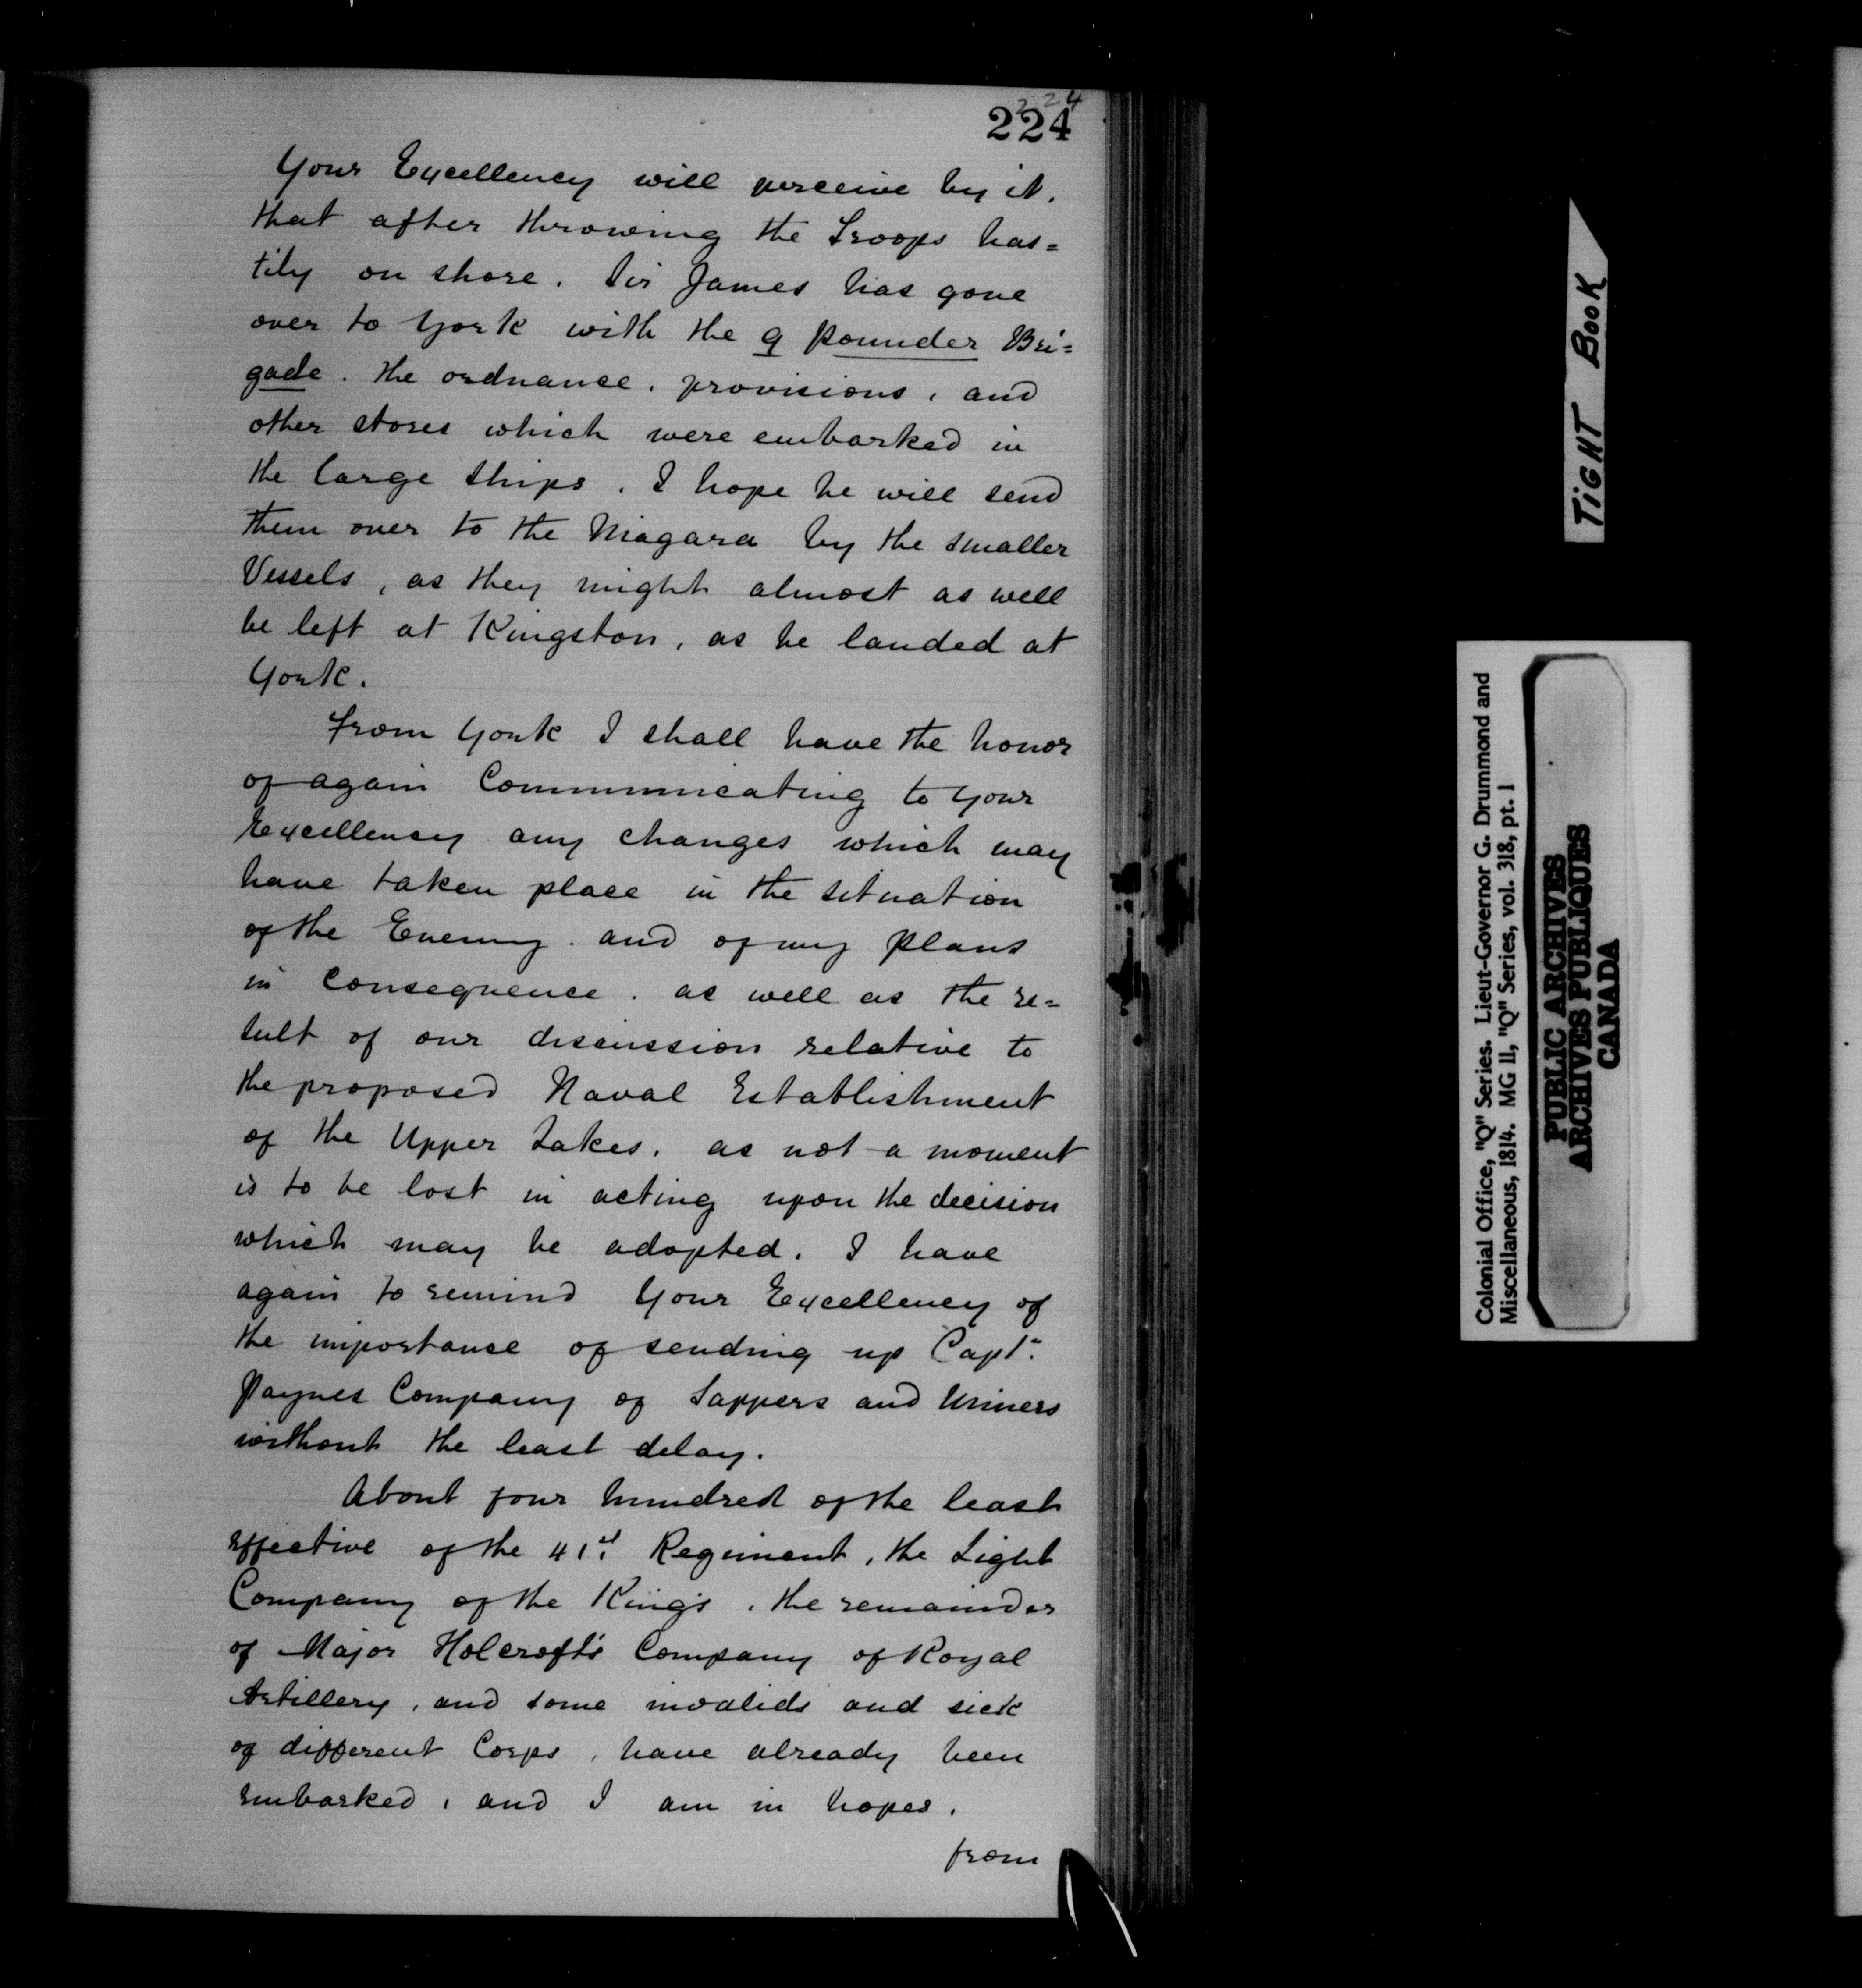 224
224
Your Excellency will perceive by it.
that after throwing the Troops has=
tily on shore. Sir James has gone
over to York with the 9 pounder Bri=
gade. the ordnance. provisions, and
other stores which were embarked in
the large ships. I hope he will send
them over to the Niagara by the smaller
Vessels, as they might almost as well
be left at Kingston, as be landed at
York.
From York I shall have the honor
of again Communicating to Your
Excellency any changes which may
have taken place in the situation
of the Enemy. and of my plans
in Consequence. as well as the re=
sult of our discussion relative to
the proposed Naval Establishment
of the Upper Lakes. as not a moment
is to be lost in acting upon the decision
which may be adopted. I have
again to remind Your Excellency of
the importance of sending up Capt.
Paynes Company of Sappers and Miners
without the least delay.
About four hundred of the least
effective of the 41st Regiment, the Light
Company of the King's, the remainder
of Major Holcroft's Company of Royal
Artillery, and some invalids and sick
of different Corps, have already been
embarked, and I am in hopes,
from
TIGHT BOOK
Colonial Office, "Q" Series. Lieut-Governor G. Drummond and
Miscellaneous, 1814. MG 11, "Q" Series, vol. 318, pt. 1
PUBLIC ARCHIVES
ARCHIVES PUBLIQUES
CANADA